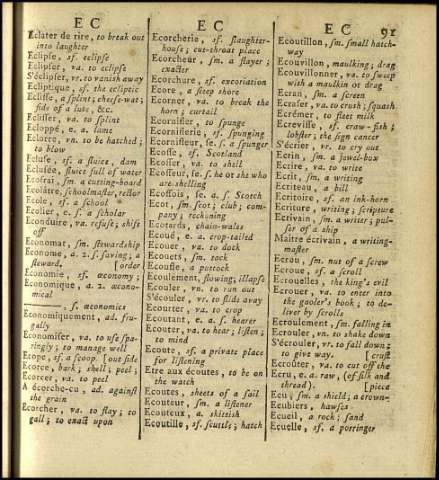 EC
EC
EC
91
Eclater de rire, to break out
into laughter
Eclipse, sf. eclipse
Eclipser, va. to eclipse
S'éclipser, vr. to vanish away
Ecliptique, sf. the ecliptic
Eclisse, a splint; cheese-wat;
side of a lute, &c.
Eclisser, va. to splint
Ecloppé, e. a. lame
Eclorre, vn. to be hatched;
to blow
Ecluse, sf. a sluice, dam
Eclusée, sluice full of water
Ecofrai, sm. a cutting-board
Ecolâtre, schoolmaster, rector
Ecole, sf. a school
Ecolier, e. s. a scholar
Econduire, va. refuse; shift
off
Economat, sm. stewardship
Econome, a. 2. s. saving; a
steward, [order
Economie, sf. œconomy;
Economique, a. 2. œcono-
mical
———, s. œconomics
Economiquement, ad. fru-
gally
Economiser, va. to use spa-
ringly; to manage well
Ecope, sf. a scoop. [out side
Ecorce, bark; shell; peel;
Ecorcer, va. to peel
A écorche-cu, ad. against
the grain
Ecorcher, va. to flay; to
gall; to exact upon
Ecorcherie, sf. slaughter-
house; cut-throat place
Ecorcheur, sm. a flayer;
exacter
Ecorchure, sf. excoriation
Ecore, a steep shore
Ecorner, va. to break the
horn; curtail
Ecornifler, to spunge
Ecorniflerie, sf. spunging
Ecornifleur, se. s. a spunger
Ecosse, sf. Scotland
Ecosser, va. to shell
Ecosseur, se. s. he or she who
are shelling
Ecossois, se. a. s. Scotch
Ecot, sm. scot; club; com-
pany; reckoning
Ecotards, chain-wales
Ecoué, e. a. crop-tailed
Ecouer, va. to dock
Ecouets, sm. tack
Ecoufle, a puttock
Ecoulement, flowing; illapse
Ecouler, vn. to run out
S'écouler, vr. to slide away
Ecourter, va. to crop
Ecoutant, e. a. s. hearer
Ecouter, va. to hear; listen;
to mind
Ecoute, sf. a private place
for listening
Etre aux écoutes, to be on
the watch
Ecoutes, sheets of a sail
Ecouteur, sm. a listener
Ecouteux, a. skittish
Ecoutille, sf. scuttle; hatch
Ecoutillon, sm. small hatch-
way
Ecouvillon, maulking; drag
Ecouvillonner, va. to sweep
with a maulkin or drag
Ecran, sm. a screen
Ecraser, va. to crush; squash
Ecrémer, to fleet milk
Ecrevisse, sf. craw-fish;
lobster; the sign cancer
S'écrier, vr. to cry out
Ecrin, sm. a jewel-box
Ecrire, va. to write
Ecrit, sm. a writing
Ecriteau, a bill
Ecritoire, sf. an ink-horn
Ecriture, writing; scripture
Ecrivain, sm. a writer; pur-
ser of a ship
Maître écrivain, a writing-
master
Ecrou, sm. nut of a screw
Ecroue, sf. a scroll
Ecrouelles, the king's evil
Ecrouer, va. to enter into
the gaoler's book; to de-
liver by scrolls
Ecroulement, sm. falling in
Ecrouler, vn. to shake down
S'écrouler, vr. to fall down;
to give way. [crust
Ecroûter, va. to cut off the
Ecru, e. a. raw, (of silk and
thread). [piece
Ecu, sm. a shield; a crown-
Ecubiers, hawses
Ecueil, a rock; sand
Ecuelle, sf. a porringer